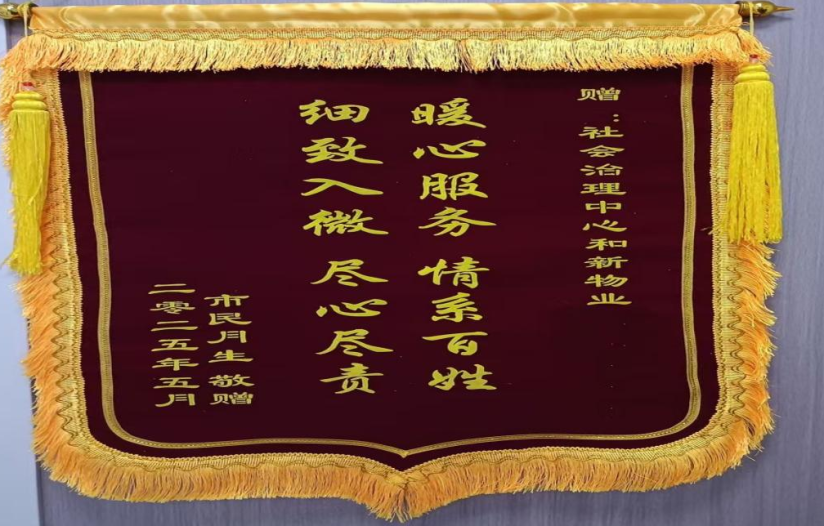 赠：社会治理中心和新物业
暖心服务 情系百姓
细致入微 尽心尽责
市民月生 敬赠
二零二五年五月